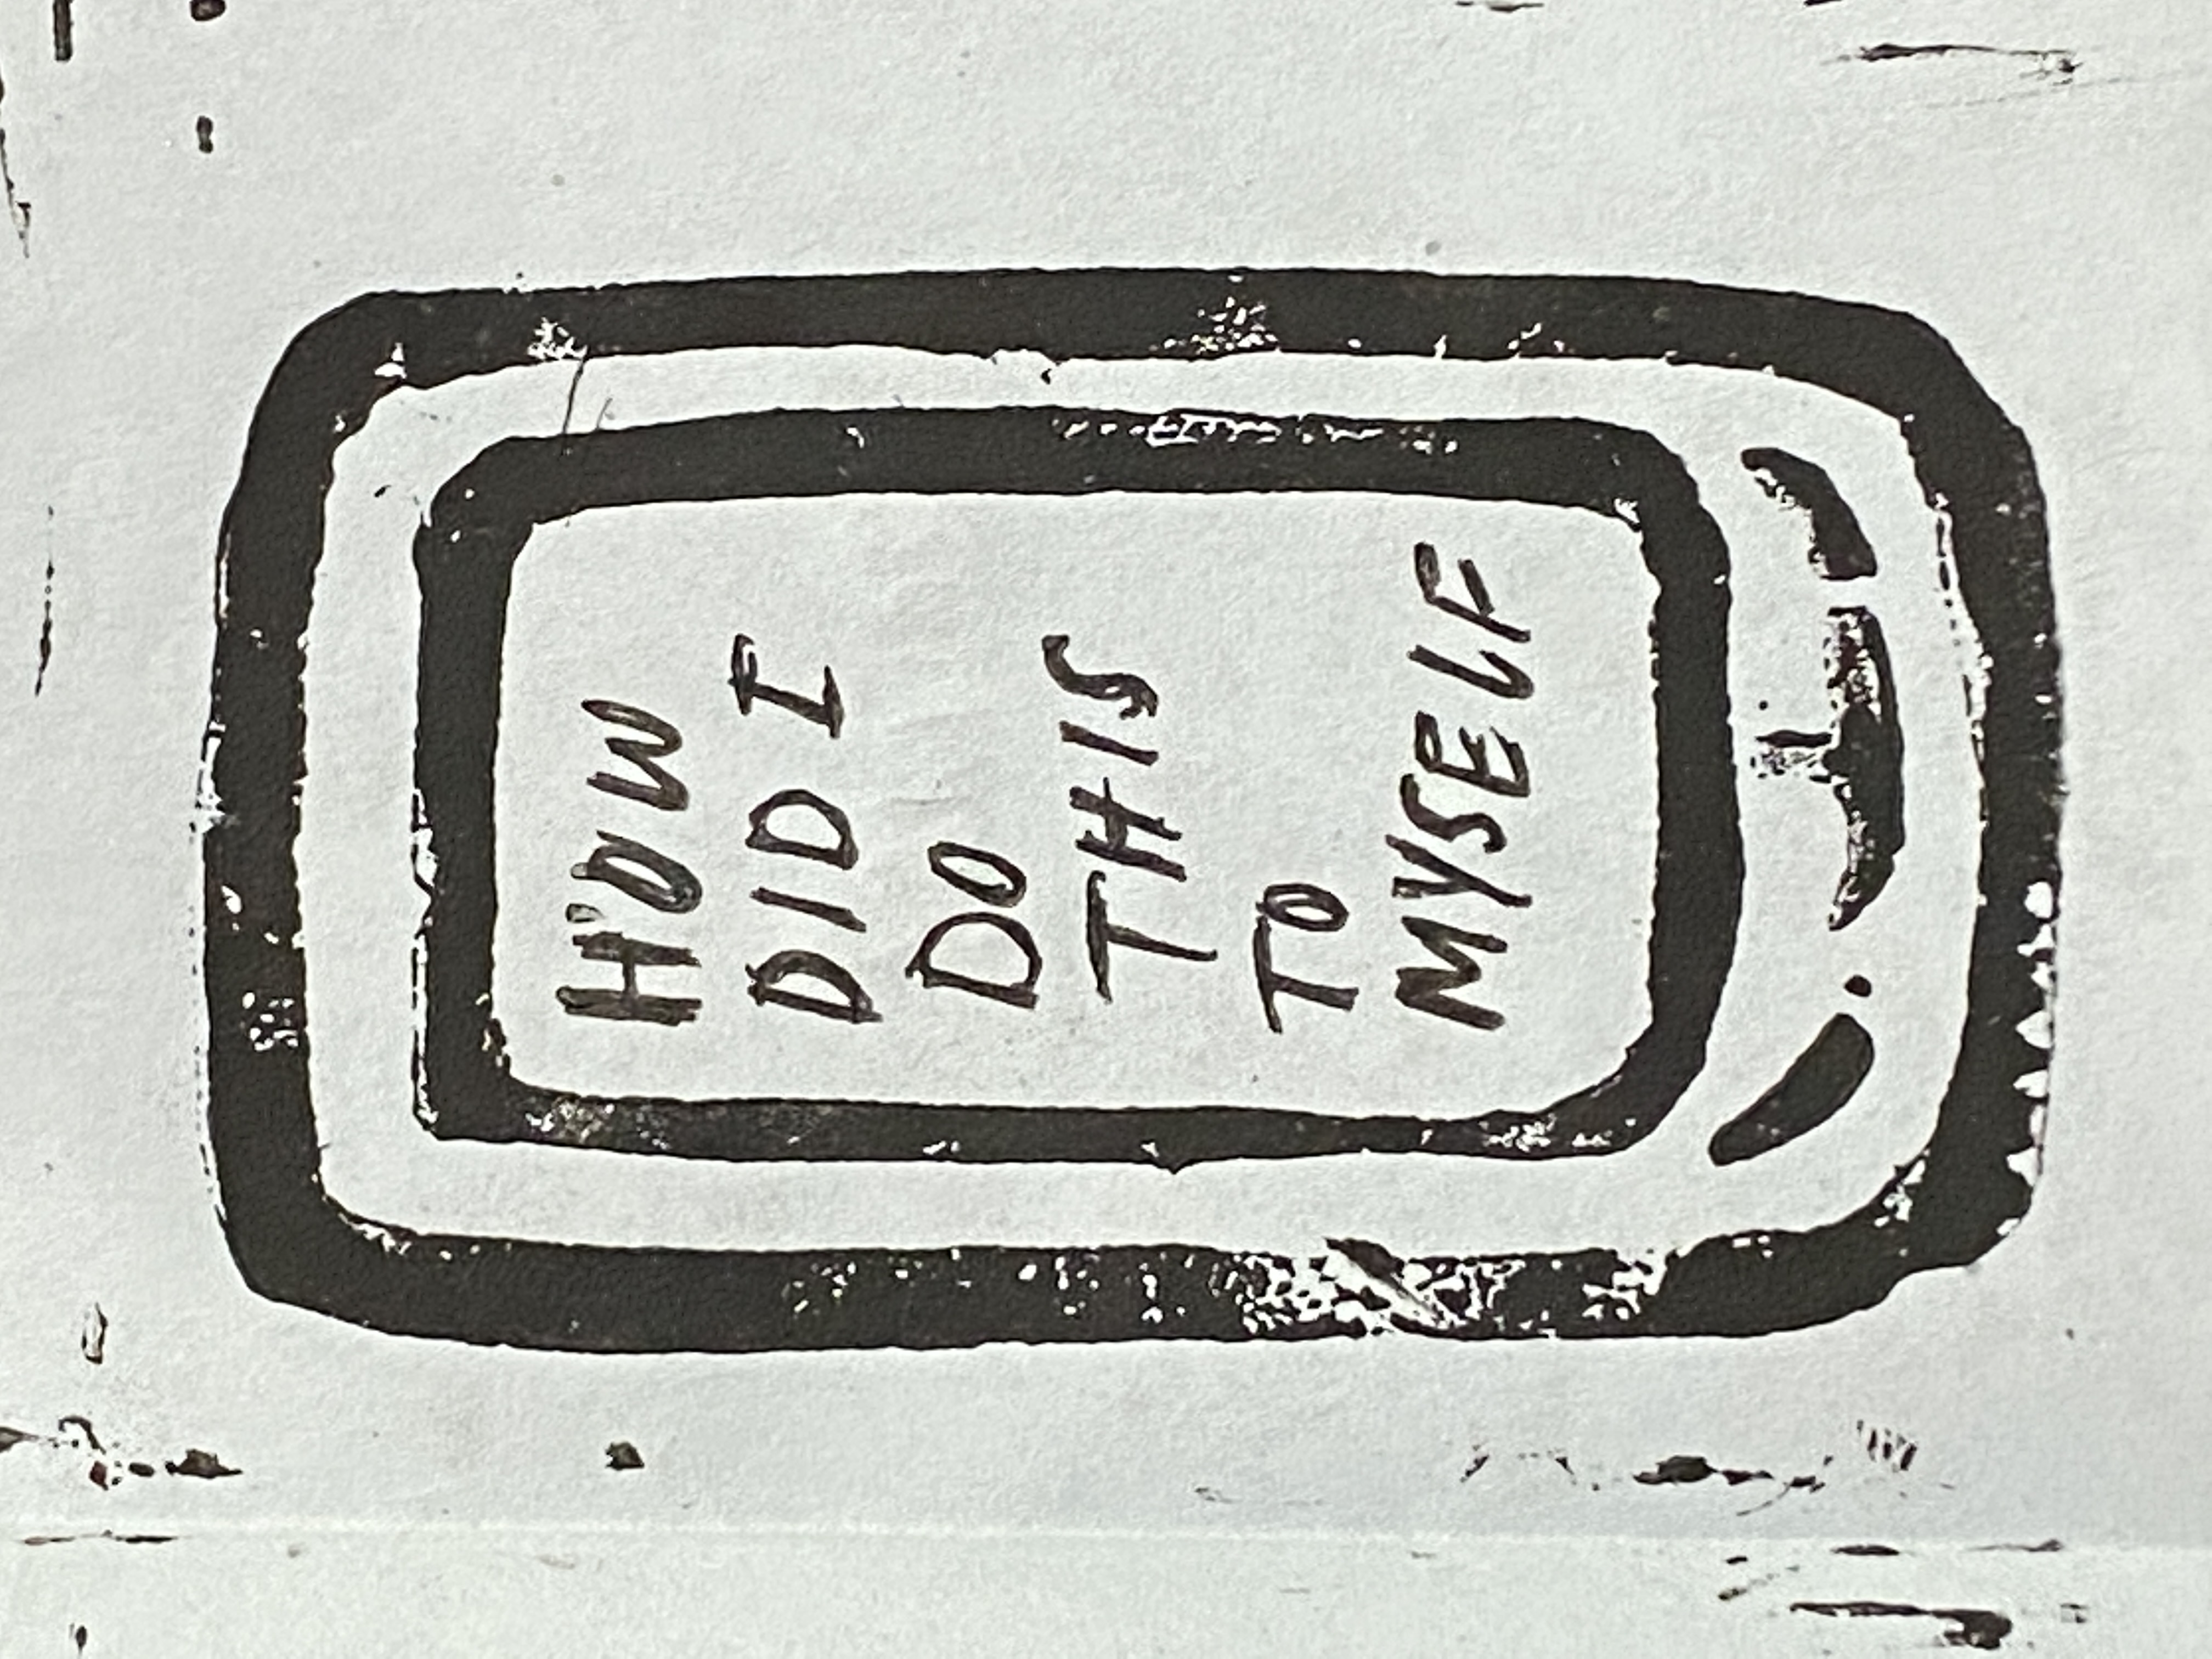 HOW
DID I
DO
THIS
TO
MYSELF